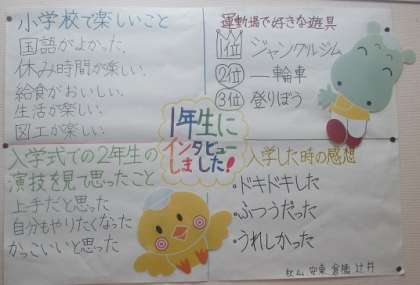 小学校で楽しいこと
国語がよかった.
休み時間が楽しい.
給食がおいしい.
生活が楽しい.
図工が楽しい.
運動場で好きな遊具
1位 ジャングルジム
2位 一輪車
3位 登りぼう
1年生に
インタビュー
しました!
入学式での2年生の
演技を見て思ったこと
上手だと思った
自分もやりたくなった
かっこいいと思った
入学した時の感想
・ドキドキした
・ふつうだった
・うれしかった
安東 倉橋 辻井